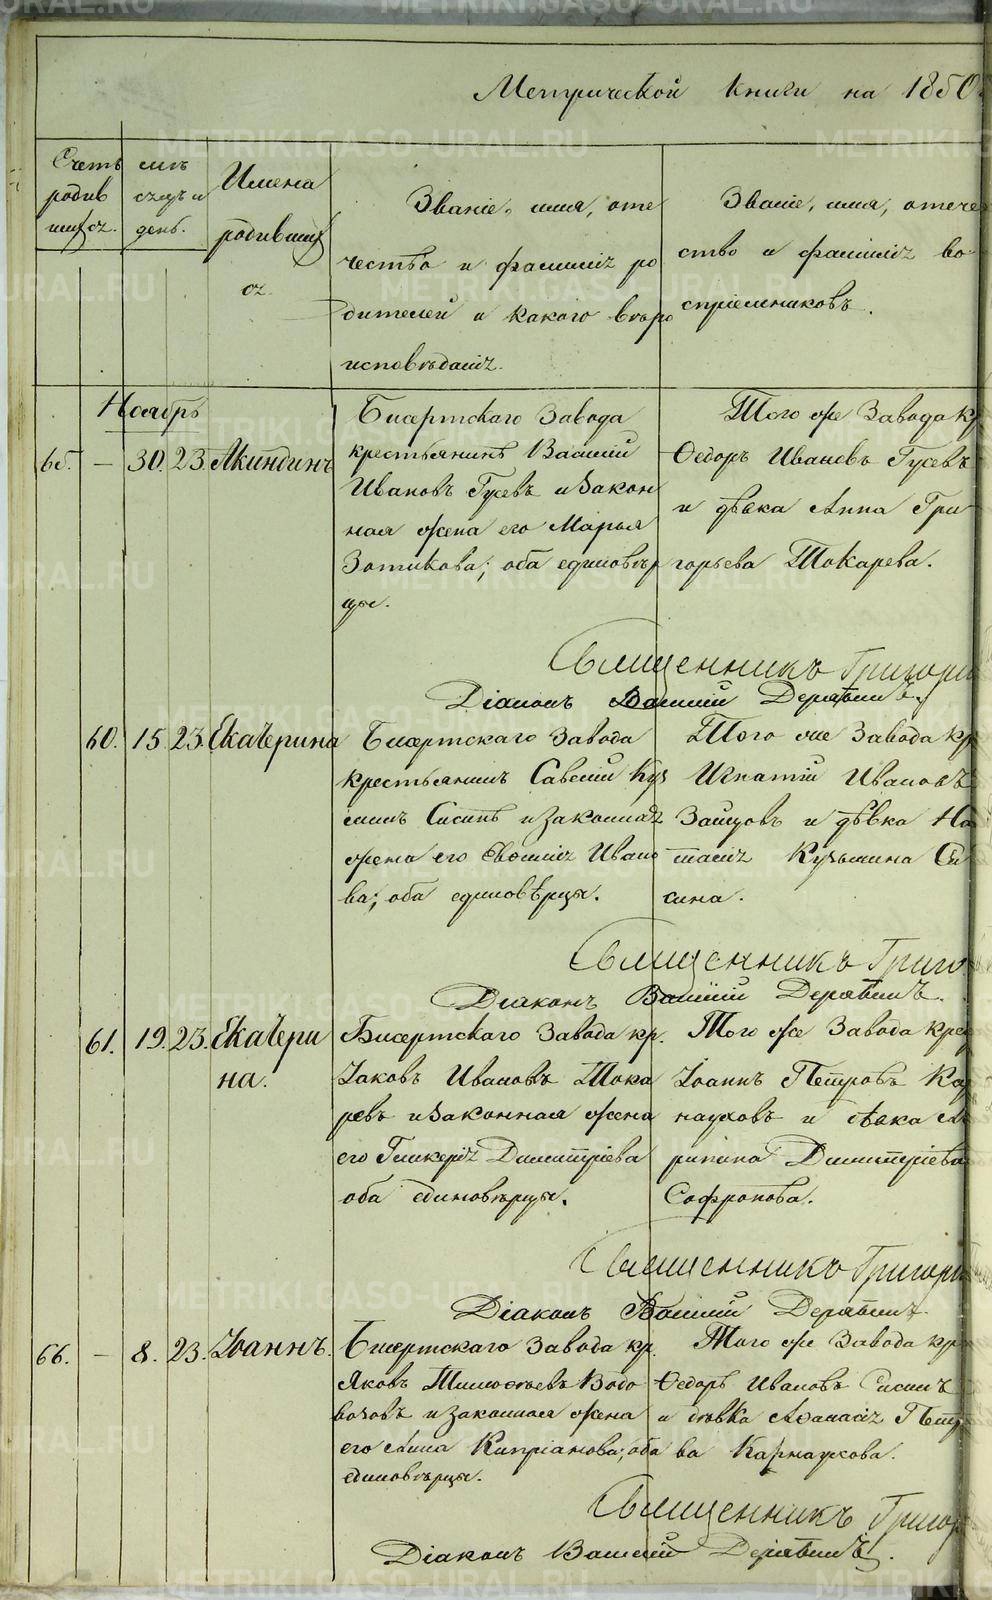 Метрической книги на 1850
Счетъ родив шихся.
мѣсѣцъ и день.
Имена родивших ся.
Званіе, имя, оте
чество и фамилія ро
дителей и какого вѣро
исповѣданія.
Званіе, имя, отече
ство и фамилія во
спріемниковъ.
Ноябрь
65. — 30. 23. Акиндинъ
Бисертскаго Завода
крестьянинъ Василій
Ивановъ Гусевъ и закон
ная жена его Марья
Зотикова; оба единовѣр
цы.
Того же Завода кр
Ѳедоръ Ивановъ Гусевъ
и дѣвка Анна Гри
горьева Токарева.
Священникъ Григори
Діаконъ Василій Дерябинъ.
60. 15. 23. Екатерина
Бисертскаго Завода
крестьянинъ Савелій Куз
минъ Сисинъ и законная
жена его Евѳимія Ивано
ва; оба единовѣрцы.
Того же Завода кр
Игнатій Ивановъ
Зайцовъ и дѣвка На
талія Кузьмина Си
сина.
Священникъ Григо
Діаконъ Василій Дерябинъ.
61. 19. 23. Екатери
на.
Бисертскаго Завода кр.
Іаковъ Ивановъ Тока
ревъ и законная жена
его Гликерія Димитріева
оба единовѣрцы.
Того же Завода крес
Іоаннъ Петровъ Кар
науховъ и дѣвка
Димитріева
Софронова.
Священникъ Григори
Діаконъ Василій Дерябинъ.
66. — 8. 23. Іоаннъ.
Бисертскаго Завода кр.
Яковъ Тимоѳеевъ Водо
возовъ и законная жена
его Анна Кипріанова; оба
единовѣрцы.
Того же Завода кр
Ѳедоръ Ивановъ Сисинъ
и дѣвка Аѳанасія Петр
ва Карнаухова.
Священникъ Григор
Діаконъ Василій Дерябинъ.
METRIKI.GASO-URAL.RU